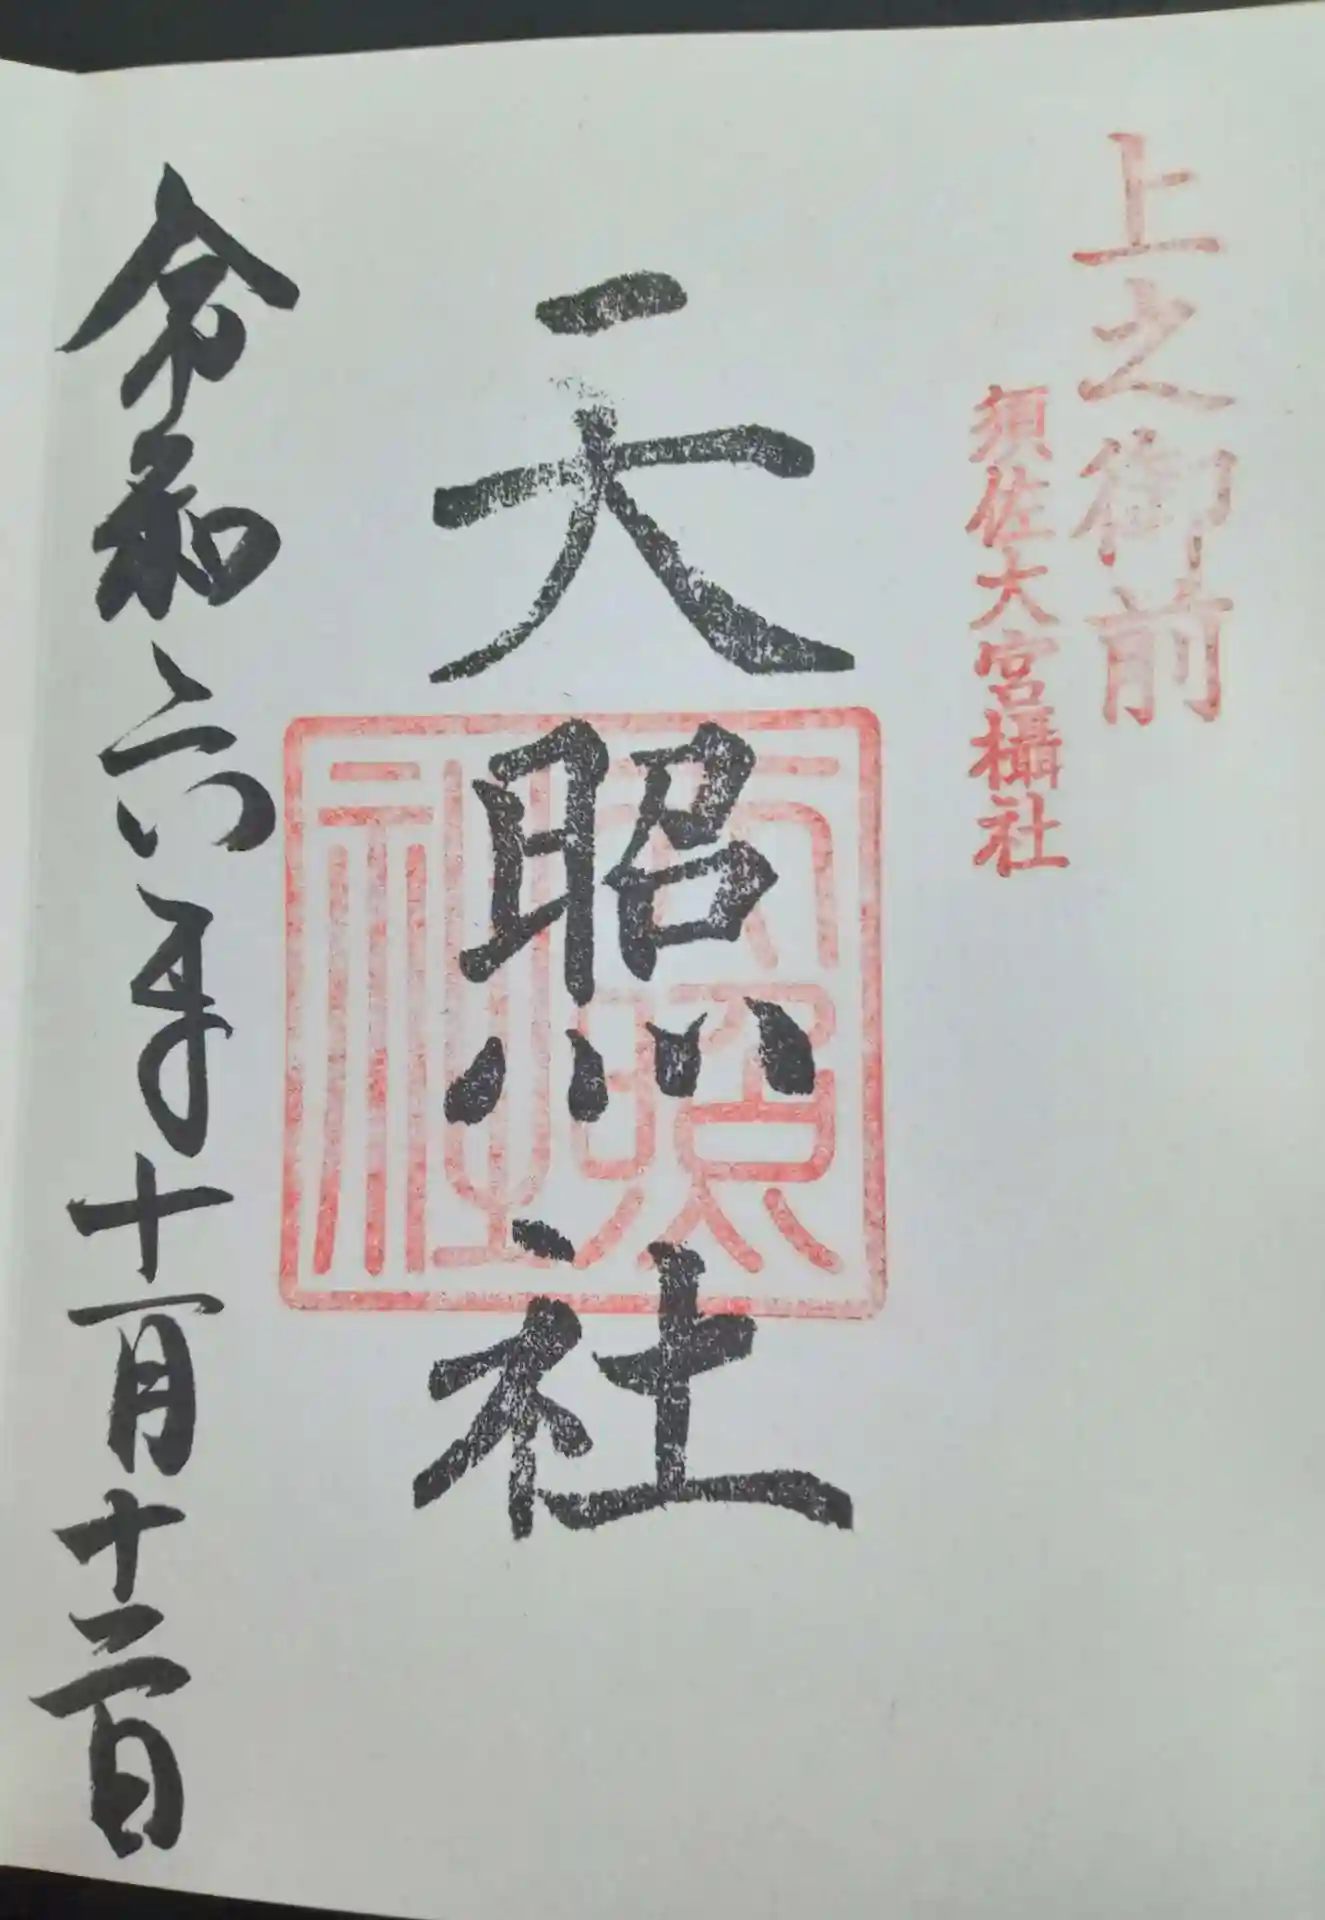 上之御前
須佐大宮攝社
天照社
天照社
令和六年十一月十二日